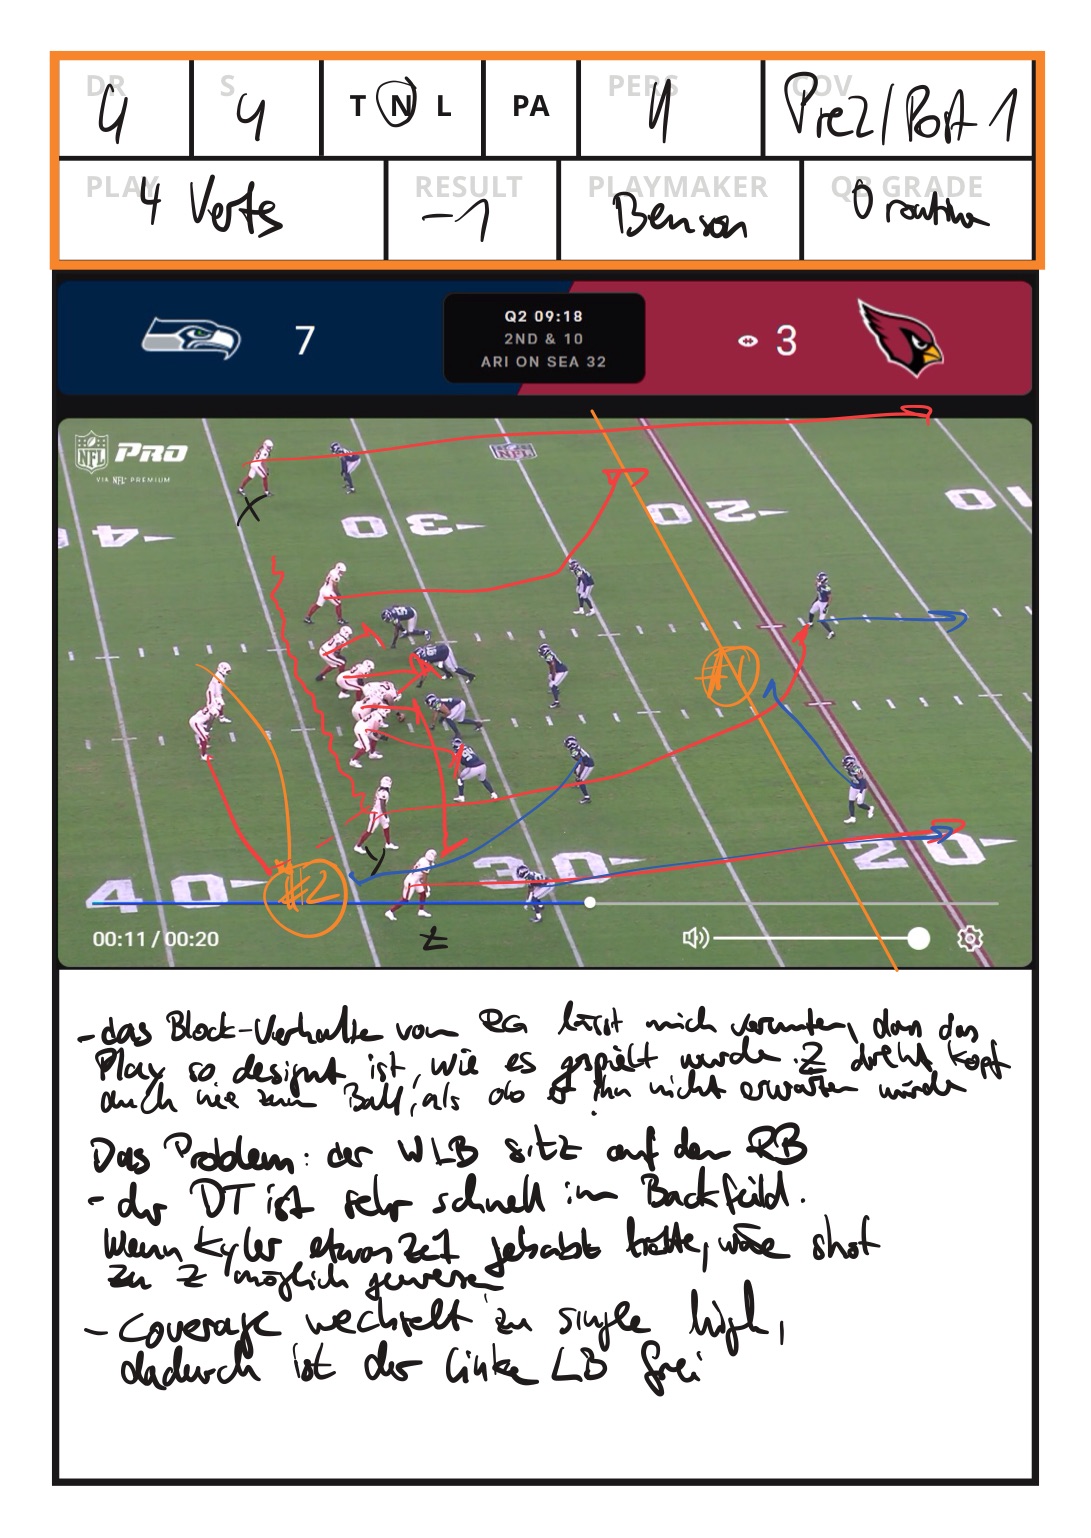 DR 4
S 4
T N L
PA
PERS 11
COV Pre2/Post 1
PLAY 4 Verts
RESULT -1
PLAYMAKER Benson
QB GRADE 0 routine
7
Q2 09:18
2ND & 10
ARI ON SEA 32
3
NFL PRO
VIA NFL+ PREMIUM
NFL
X
4
30
20
10
#1
Y
#2
40
30
20
00:11 / 00:20
Z
- das Block-Verhalten vom RG lässt mich vermuten, dass das
Play so designt ist, wie es gespielt wurde. Z dreht Kopf
auch nie zum Ball, als ob er ihn nicht erwarten würde
Das Problem: der WLB sitzt auf dem RB
- der DT ist sehr schnell im Backfield.
Wenn Kyler etwas Zeit gehabt hätte, wäre shot
zu Z möglich gewesen
- Coverage wechselt zu single high,
dadurch ist der linke LB frei